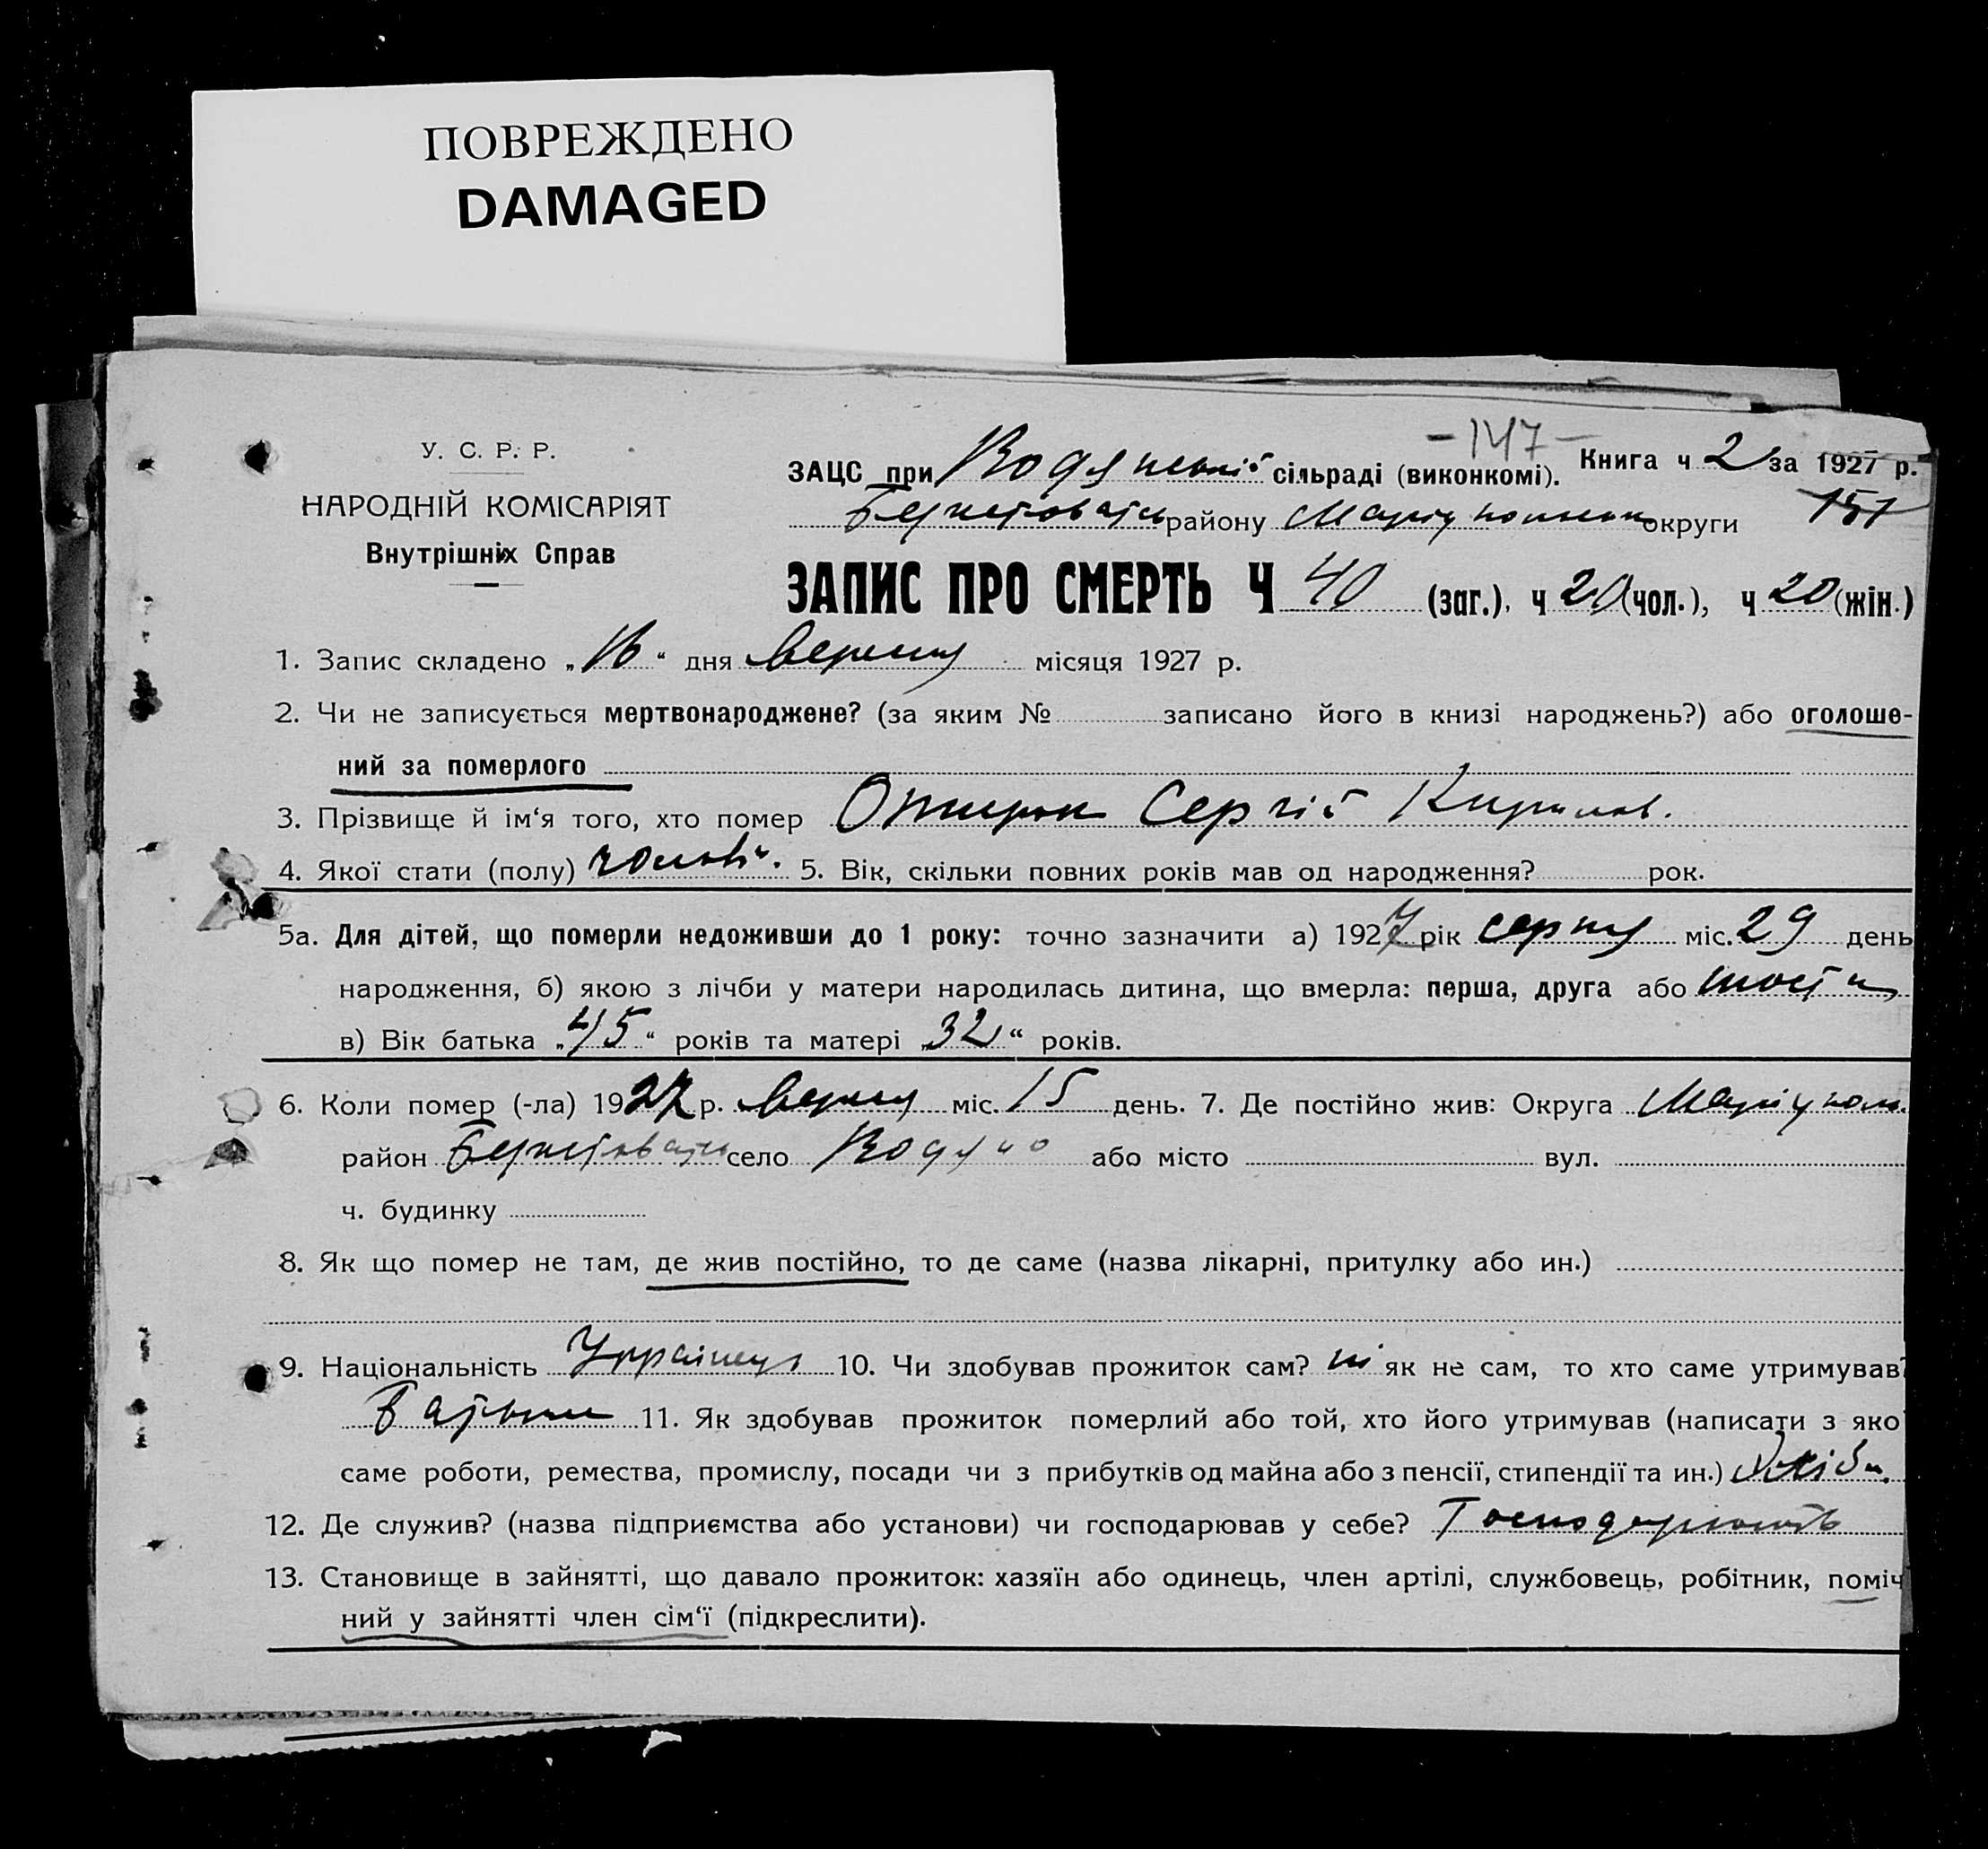 ПОВРЕЖДЕНО
DAMAGED
-147-
У. С. Р. Р.
НАРОДНІЙ КОМІСАРІЯТ
Внутрішніх Справ
ЗАЦС при Водянській сільраді (виконкомі). Книга ч 2 за 1927 р.
району Маріупольськ округи 151
ЗАПИС ПРО СМЕРТЬ Ч 40 (заг.), ч 20 (чол.), ч 20 (жін.)
1. Запис складено „16“ дня вересня місяця 1927 р.
2. Чи не записується мертвонароджене? (за яким № записано його в книзі народжень?) або оголоше-
ний за померлого
3. Прізвище й ім‘я того, хто помер Сергій Кирилов.
4. Якої стати (полу) чоловіч. 5. Вік, скільки повних років мав од народження? рок.
5а. Для дітей, що померли недоживши до 1 року: точно зазначити а) 1927 рік серпня міс. 29 день
народження, б) якою з лічби у матери народилась дитина, що вмерла: перша, друга або шоста
в) Вік батька „45“ років та матері „32“ років.
6. Коли помер (-ла) 1927 р. вересня міс. 15 день. 7. Де постійно жив: Округа Маріупол.
район село Водяно або місто вул.
ч. будинку
8. Як що помер не там, де жив постійно, то де саме (назва лікарні, притулку або ин.)
9. Національність Українець 10. Чи здобував прожиток сам? ні як не сам, то хто саме утримував?
батьки 11. Як здобував прожиток померлий або той, хто його утримував (написати з яко
саме роботи, ремества, промислу, посади чи з прибутків од майна або з пенсії, стипендії та ин.) Хліб.
12. Де служив? (назва підприємства або установи) чи господарював у себе? Господарюють
13. Становище в зайнятті, що давало прожиток: хазяїн або одинець, член артілі, службовець, робітник, поміч
ний у зайнятті член сім‘ї (підкреслити).